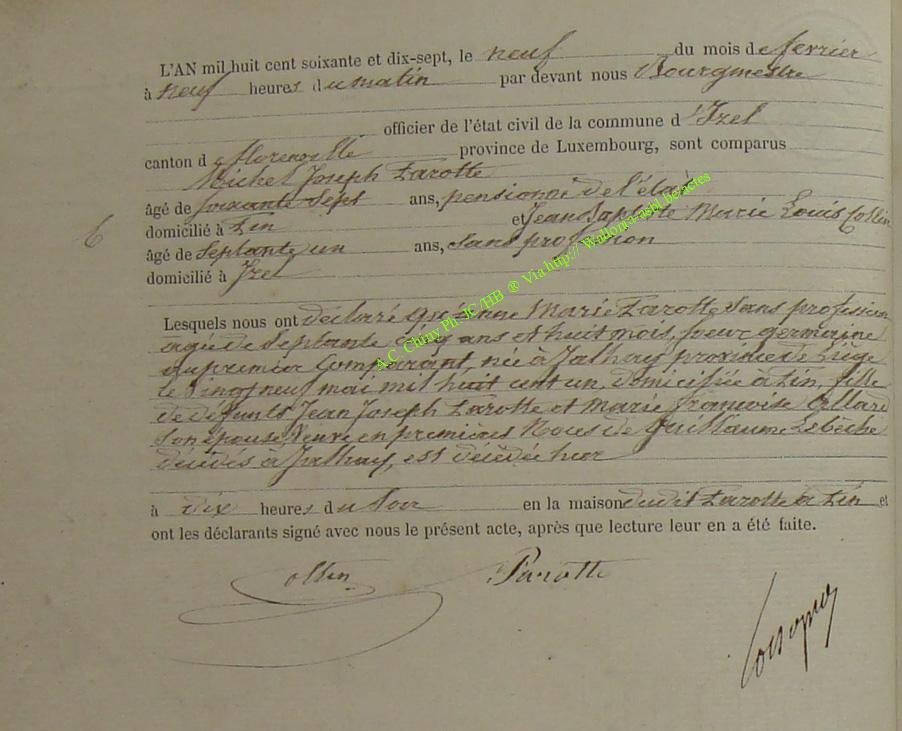 L'AN mil huit cent soixante et dix-sept, le neuf du mois de fevrier
à neuf heures du matin par devant nous Bourgmestre
officier de l'état civil de la commune d'Izel
canton de florenville province de Luxembourg, sont comparus
Michel Joseph Parotte
âgé de soixante Sept ans, pensionné de l'état
domicilié à Pin et Jean Baptiste Marie Louis Collin
6
âgé de Septante un ans, Sans profession
domicilié à Izel
Lesquels nous ont déclaré qu'Anne Marie Parotte Sans profession
agée de Septante cinq ans et huit mois, soeur germaine
du premier Comparant, née à Jalhay province de Liège
le vingt neuf mai mil huit cent un, domiciliée à Pin, fille
de défunts Jean Joseph Parotte et Marie françoise Collard
Son épouse Veuve en premières Noces de Guillaume
décédés à Jalhay, est décédée hier
à dix heures du Soir en la maison dudit Parotte à Pin et
ont les déclarants signé avec nous le présent acte, après que lecture leur en a été faite.
Collin Parotte
A.C Chiny Ph. JC/HB ® Via http:// Wallonia-asbl.be:actes